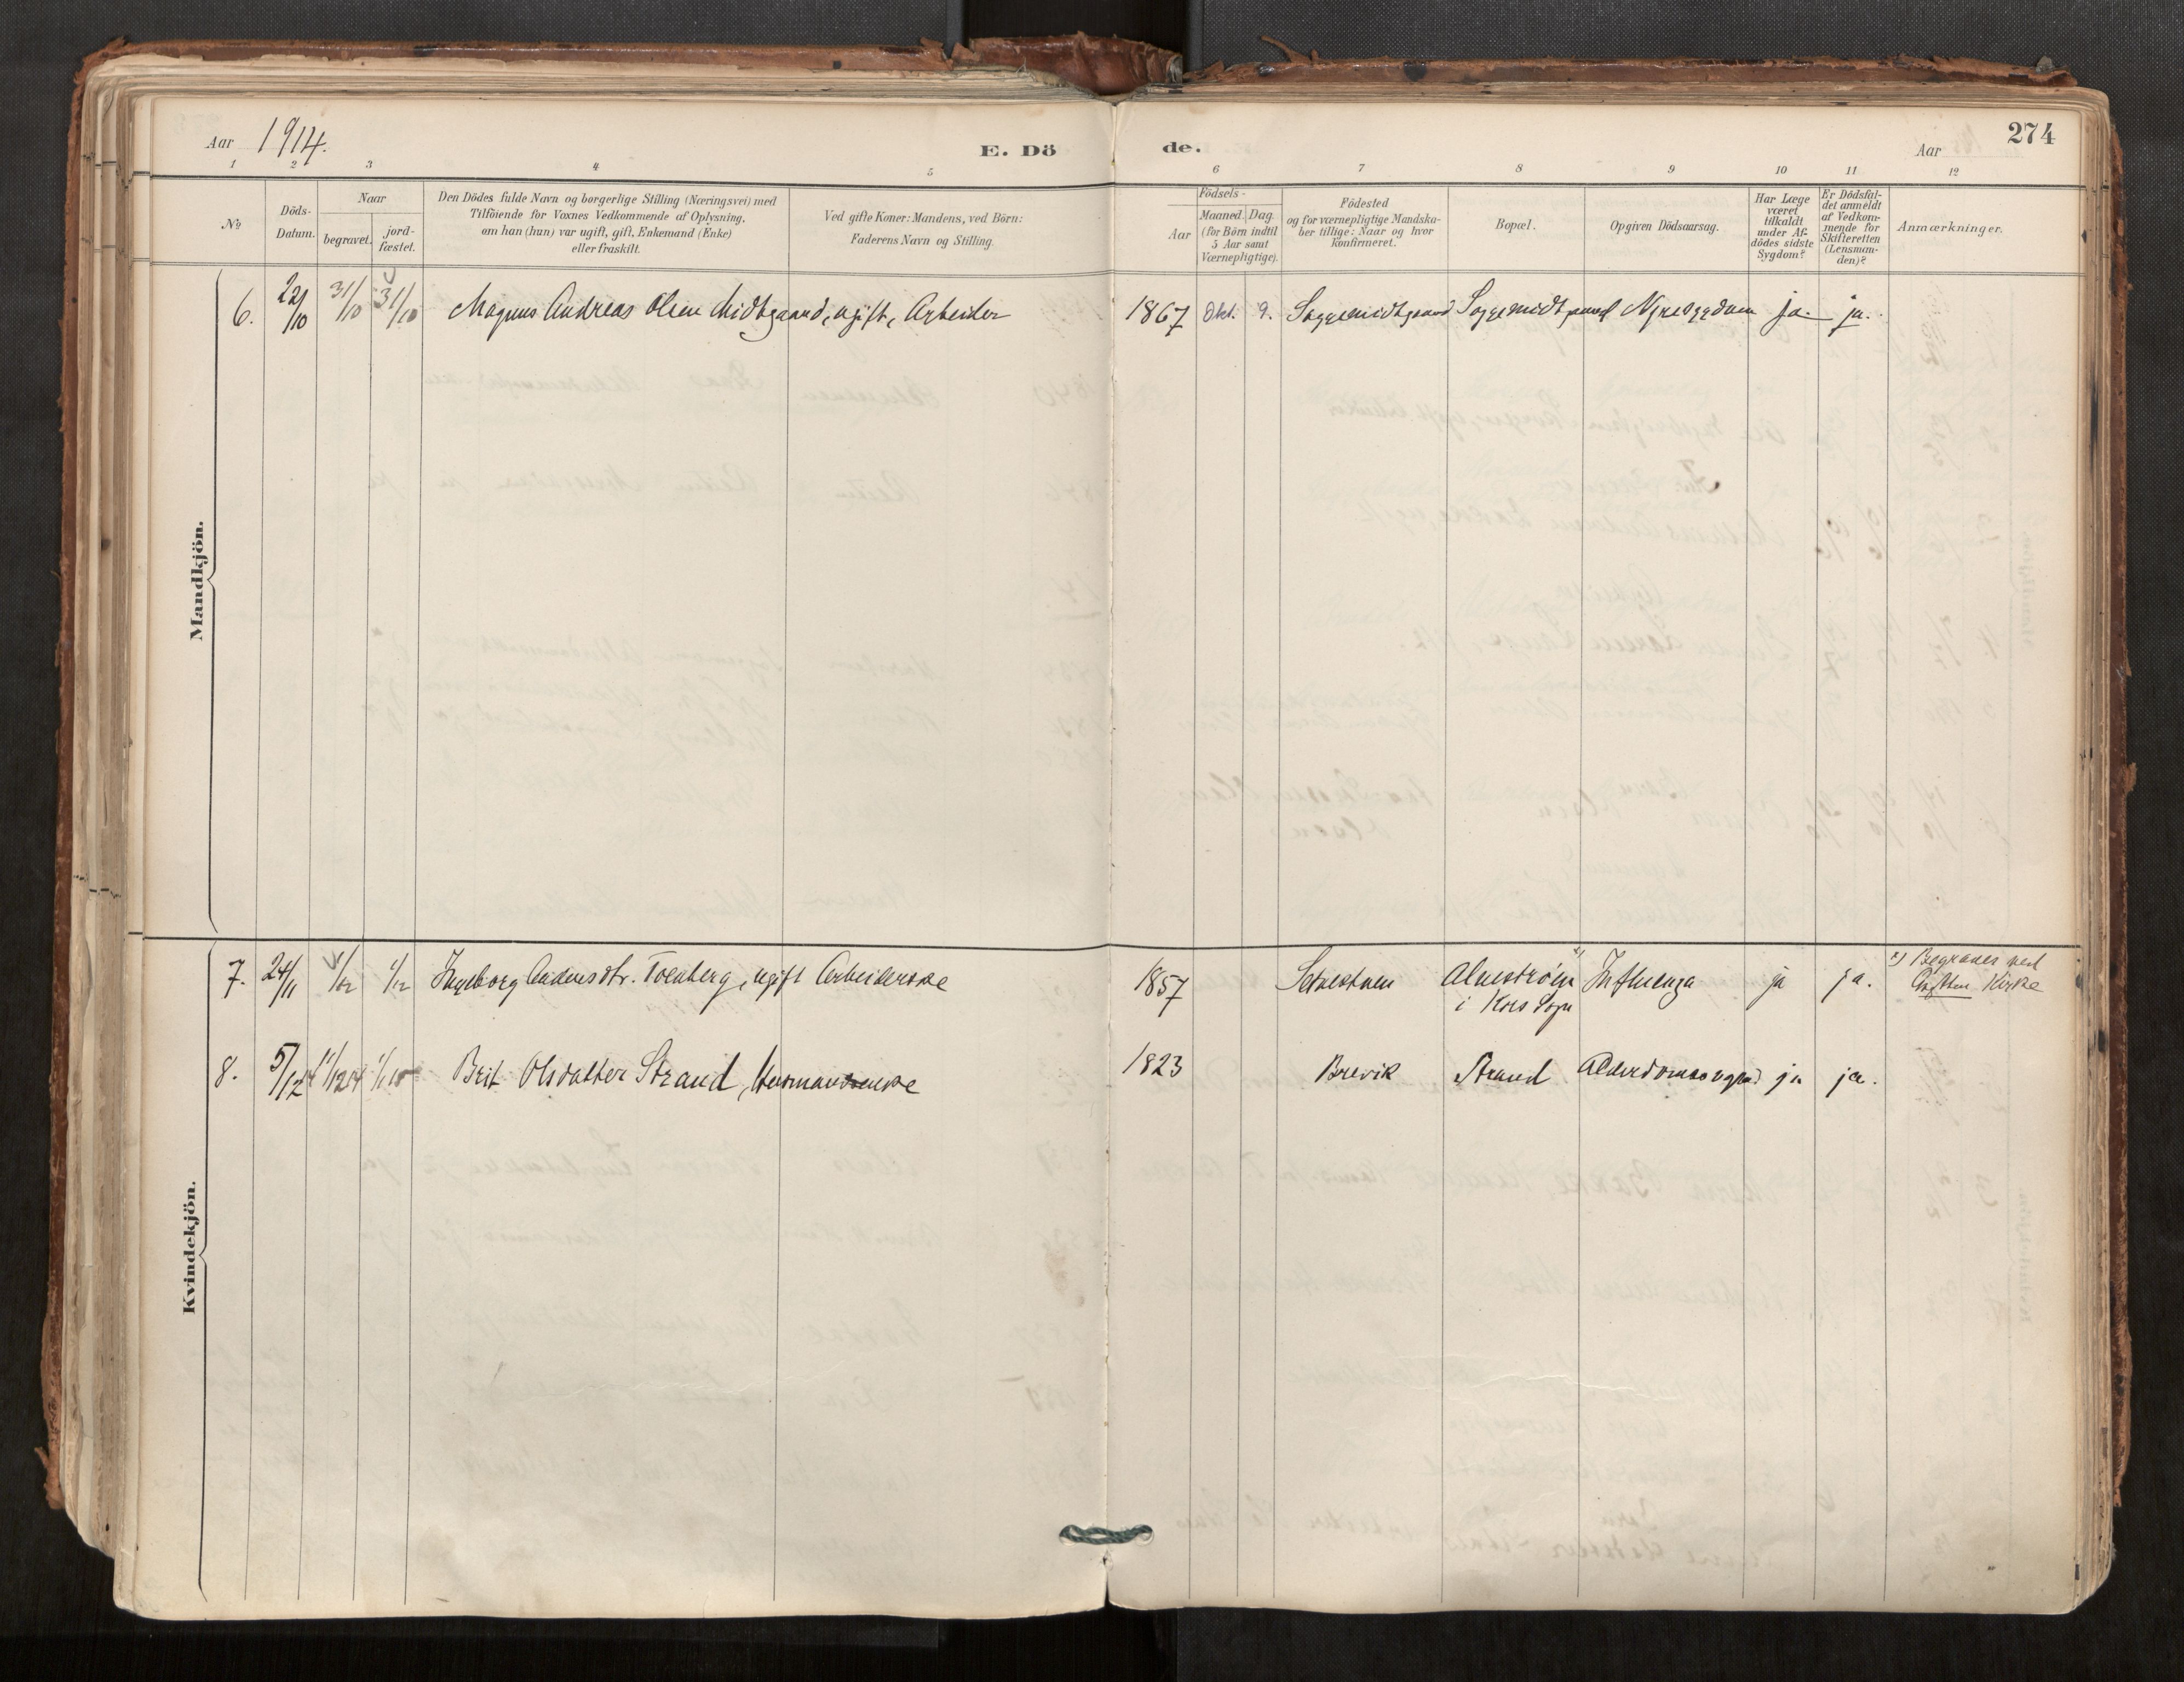 Aar 1914.
E. Dö
de.
Aar
274
1 2 3 4 5 6 7 8 9 10 11 12
No
Döds-
Datum.
Naar
begravet.
jord-
fæstet.
Den Dödes fulde Navn og borgerlige Stilling (Næringsvei) med
Tilföiende for Voxnes Vedkommende af Oplysning,
om han (hun) var ugift, gift, Enkemand (Enke)
eller fraskilt.
Ved gifte Koner: Mandens, ved Börn:
Faderens Navn og Stilling.
Födsels-
Aar
Maaned.
Dag.
(for Börn indtil
5 Aar samt
Værnepligtige).
Födested
og for værnepligtige Mandska-
ber tillige: Naar og hvor
Konfirmeret.
Bopæl.
Opgiven Dödsaarsag.
Har Læge
været
tilkaldt
under Af-
dödes sidste
Sygdom?
Er Dödsfal-
det anmeldt
af Vedkom-
mende for
Skifteretten
(Lensman-
den)?
Anmærkninger.
Mandkjön.
6. 22/10 31/10 31/10 Magnus Andreas Olsen Midtgaard, ugift, Arbeider 1867 Okt. 9. Soggemidtgaard Soggemidtgaard Nyresygdom ja. ja.
Kvindekjön.
7. 24/11 1/12 1/12 Ingeborg Andersdtr. Torvberg, ugift Arbeiderske 1857 Setnesbuen Almeström Influenza ja ja. Begraves ved
i Kors Sogn
Grytten Kirke
8. 5/12 Brit Olsdatter Strand, 1823 Brevik Strand ja ja.